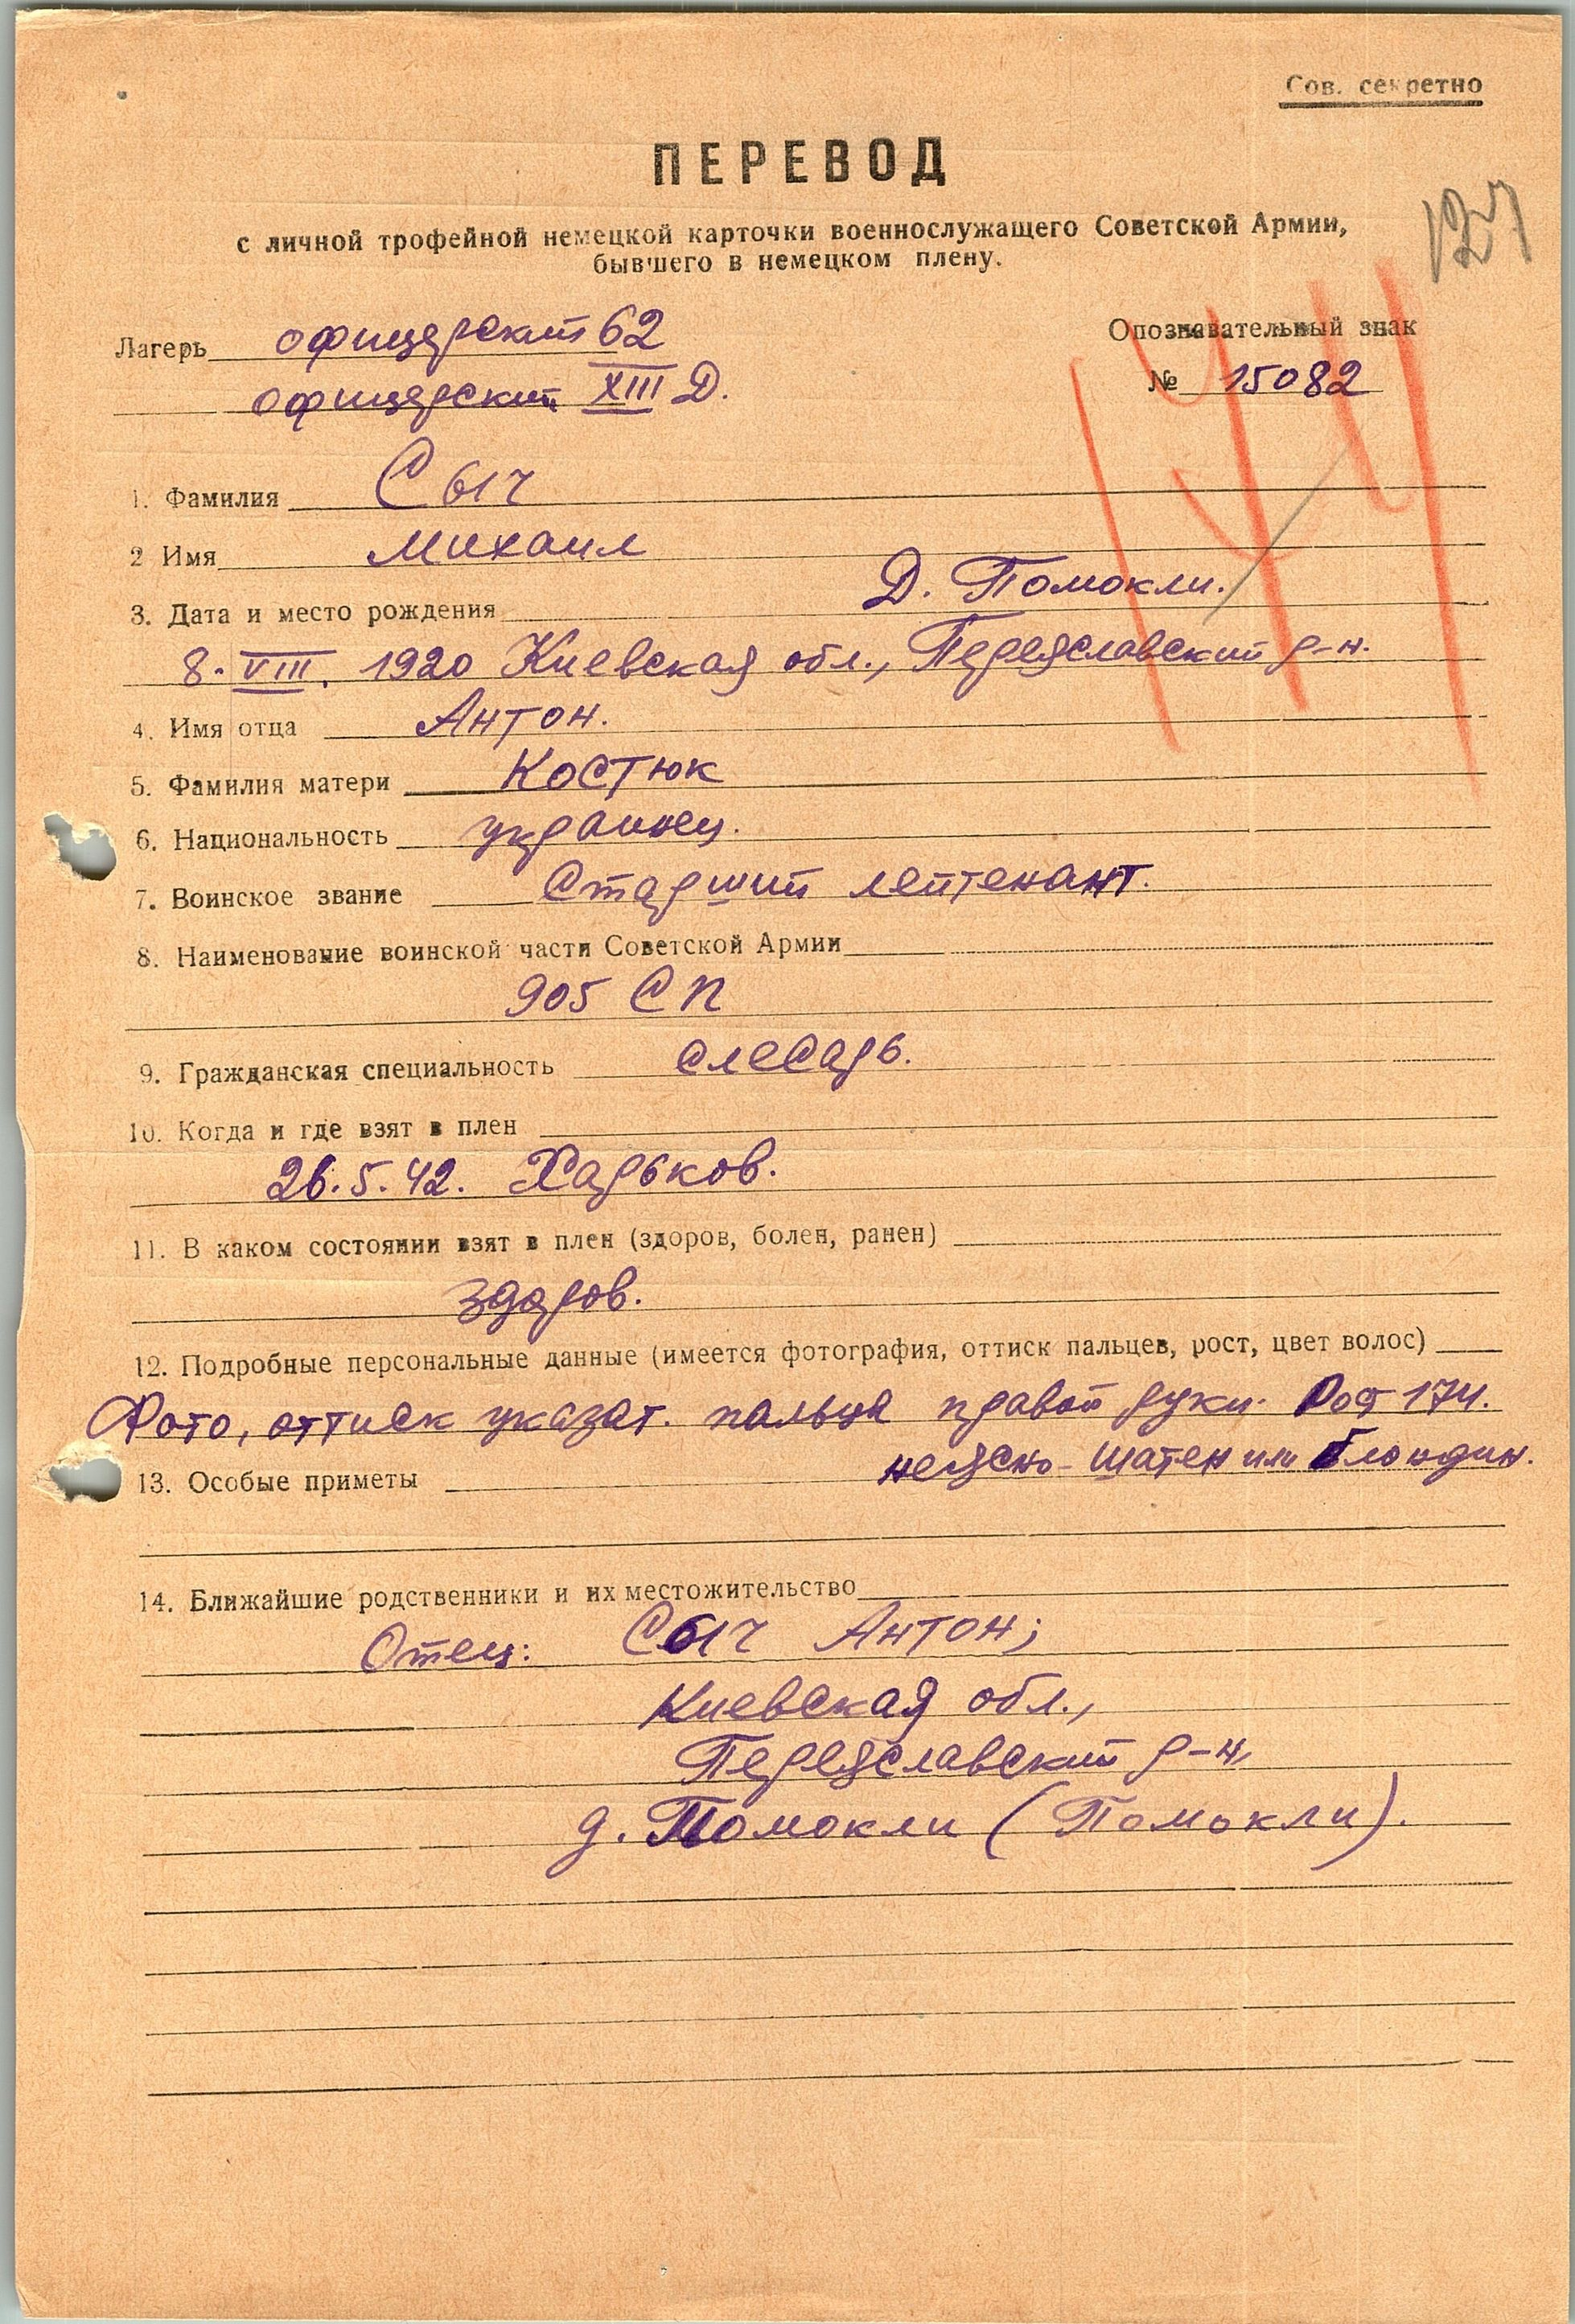 Сов. секретно
ПЕРЕВОД
127
с личной трофейной немецкой карточки военнослужащего Советской Армии,
бывшего в немецком плену.
Лагерь офицерский 62
Опознавательный знак
офицерский XIII Д.
№ 15082
1. Фамилия Сыч
2 Имя Михаил
Д. Помокли.
3. Дата и место рождения
8. VIII. 1920 Киевская обл., Переяславский р-н.
4. Имя отца Антон.
5. Фамилия матери Костюк
6. Национальность украинец.
7. Воинское звание Старший лейтенант.
8. Наименование воинской части Советской Армии
905 СП
9. Гражданская специальность слесарь.
10. Когда и где взят в плен
26.5.42. Харьков.
11. В каком состоянии взят в плен (здоров, болен, ранен)
здоров.
12. Подробные персональные данные (имеется фотография, оттиск пальцев, рост, цвет волос)
Фото, оттиск указат. пальца правой руки. Рост 174.
неясно - шатен или блондин.
13. Особые приметы
14. Ближайшие родственники и их местожительство
Отец: Сыч Антон;
Киевская обл.,
Переяславский р-н,
д. Помокли (Помокли).